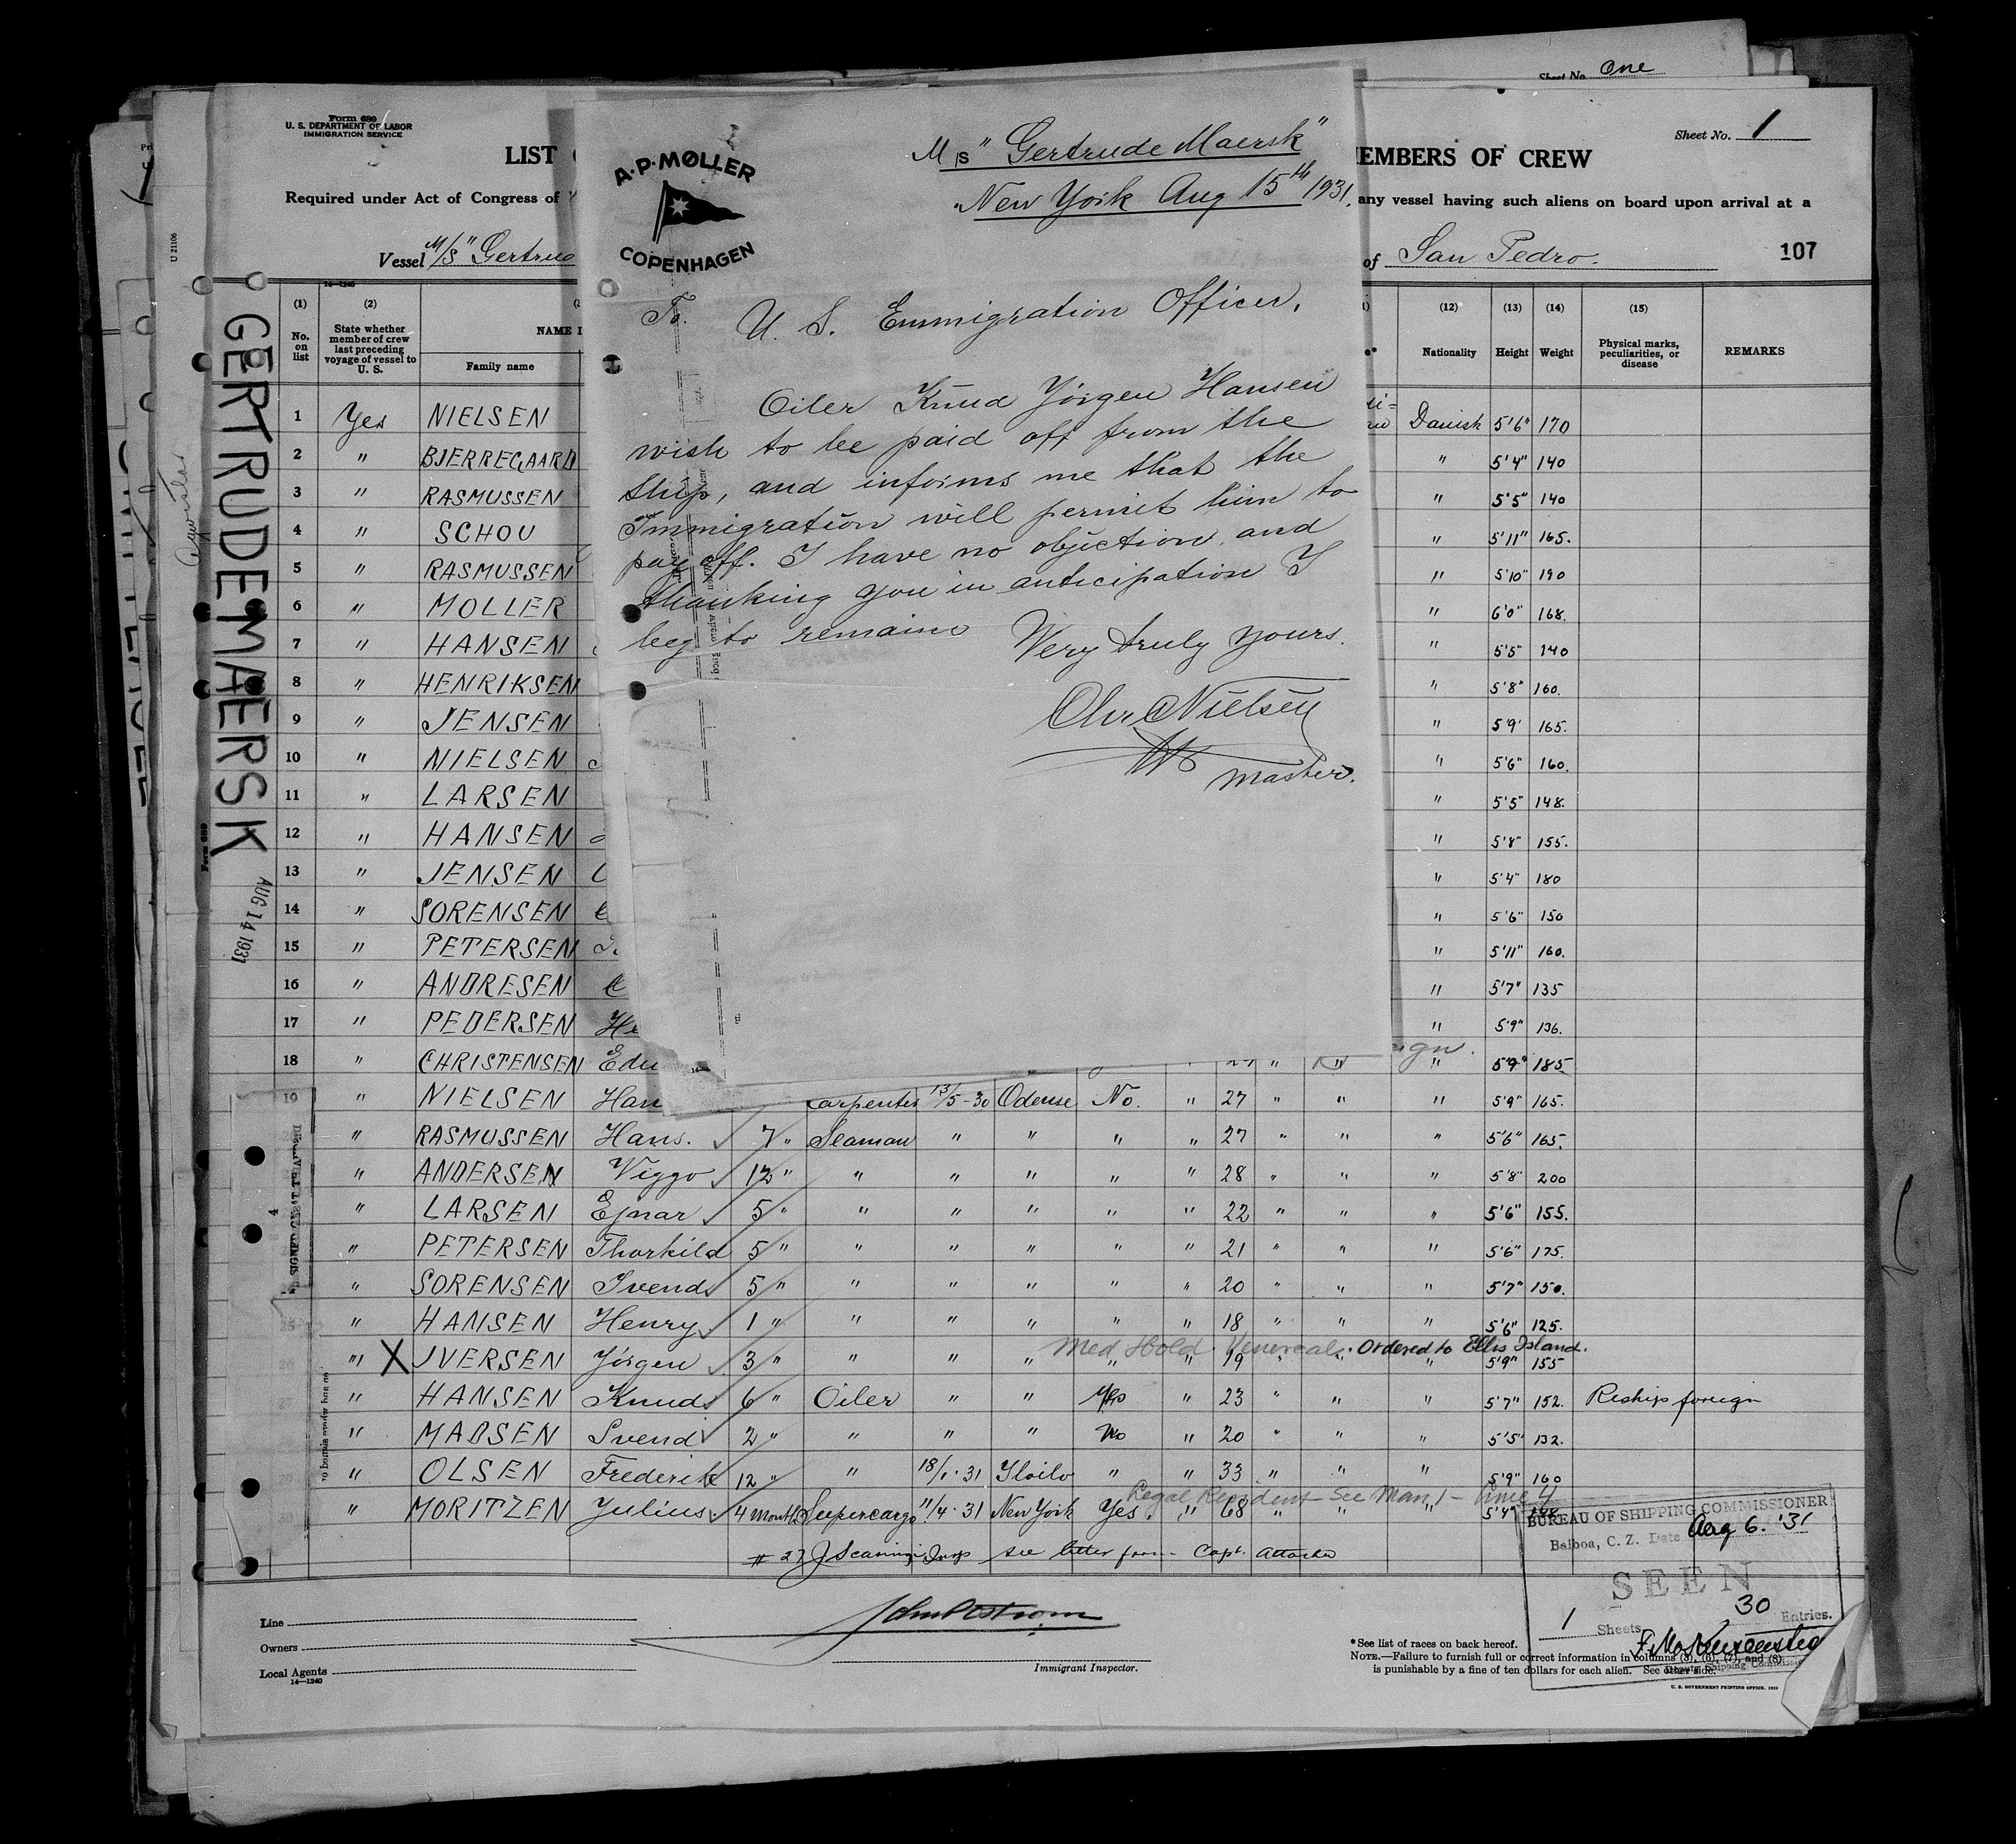 Sheet No. One
Form 680
U. S. DEPARTMENT OF LABOR
IMMIGRATION SERVICE
Sheet No. 1
LIST
EMBERS OF CREW
Required under Act of Congress of
any vessel having such aliens on board upon arrival at a
Vessel M/S "Gertrud
of San Pedro.
107
U 21106
GERTRUDE MAERSK
AUG 14 1931
A·P·MØLLER
COPENHAGEN
M/s "Gertrude Maersk"
New York Aug 15th 1931.
To.
U. S. Emmigration Officer.
Oiler Knud Jörgen Hansen
wish to be paid off from the
ship, and informs me that the
Immigration will permit him to
pay off. I have no objection and
thanking you in anticipation I
beg to remain
Very truly yours.
Chr Nielsen
Master.
14-1240
(1) (2) (12) (13) (14) (15)
No. on list
State whether member of crew last preceding voyage of vessel to U. S.
NAME I
Family name
Nationality Height Weight
Physical marks, peculiarities, or disease
REMARKS
1 Yes NIELSEN Danish 5'6" 170
2 " BJERREGAARD " 5'4" 140
3 " RASMUSSEN " 5'5" 140
4 " SCHOU " 5'11" 165.
5 " RASMUSSEN " 5'10" 190
6 " MOLLER " 6'0" 168.
7 " HANSEN " 5'5" 140
8 " HENRIKSEN " 5'8" 160.
9 " JENSEN " 5'9' 165.
10 " NIELSEN " 5'6" 160.
11 " LARSEN " 5'5" 148.
12 " HANSEN " 5'8" 155.
13 " JENSEN " 5'4" 180
14 " SORENSEN " 5'6" 150
15 " PETERSEN " 5'11" 160.
16 " ANDRESEN " 5'7" 135
17 " PEDERSEN He " 5'9" 136.
18 " CHRISTENSEN Edu " " 5'9" 185
19 " NIELSEN Han Carpenter 13/5-30 Odense No. " 27 " " " 5'9" 165.
" RASMUSSEN Hans. 7 " Seaman " " " " 27 " " " 5'6" 165.
" ANDERSEN Viggo 12 " " " " " " 28 " " " 5'8" 200
" LARSEN Ejnar 5 " " " " " " 22 " " " 5'6" 155.
" PETERSEN Thorkild 5 " " " " " " 21 " " " 5'6" 175.
" SORENSEN Svend 5 " " " " " 20 " " " 5'7" 150.
25 " HANSEN Henry 1 " " " " " " 18 " " " 5'6" 125.
Med Hold. Venereal. Ordered to Ellis Island.
26 " X IVERSEN Jörgen 3 " " " " " " 19 " " " 5'9" 155
27 " HANSEN Knud 6 " Oiler " " Yes " 23 " " " 5'7" 152. Reship foreign
" MADSEN Svend 2 " " " " No " 20 " " " 5'5" 132.
" OLSEN Frederik 12 " " 18/1·31 Iloilo " " 33 " " " 5'9" 160
Legal Resident - See Man. 1 - Line 4
30 " MORITZEN Julius 4 months Supercargo 11/4·31 New York Yes. " 68 " " " 5'4"
# 27 see letter from Capt. attached
Line
Owners
Local Agents
14-1240
Immigrant Inspector.
*See list of races on back hereof.
NOTE.—Failure to furnish full or correct information in columns (3), (6), (7), and (8)
is punishable by a fine of ten dollars for each alien. See other side.
U. S. GOVERNMENT PRINTING OFFICE, 1929
BUREAU OF SHIPPING COMMISSIONER
Balboa, C. Z. Date Aug 6. '31
SEEN
1 Sheets 30 Entries.
Deputy Shipping Commissioner